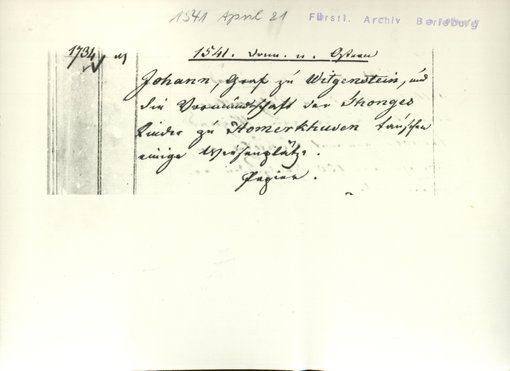 1541 April 21 Fürstl. Archiv Berleburg
1734 1541. Donn. n. Ostern
Johann, Graf zu Witgenstein, und
die Vormundschaft der
Kinder zu Homerkhusen tauschen
einige Wiesenplätze.
Papier.